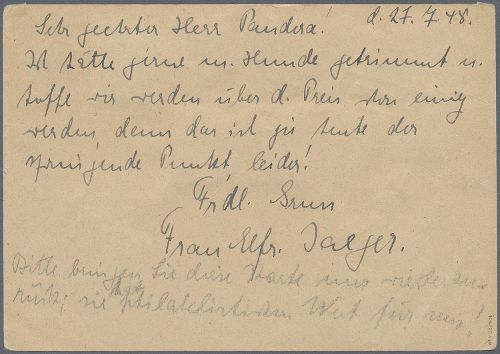 d. 27. 7. 48.
Sehr geehrter Herr Pandera!
Ich hätte gerne m. Hunde getrimmt u.
hoffe wir werden über d. Preis schon einig
werden, denn das ist ja heute der
springende Punkt, leider!
Frdl. Gruss
Frau Elfr. Jaeger.
Bitte bringen Sie diese Karte uns wieder zu-
rück; sie hat philatelistischen Wert für uns!